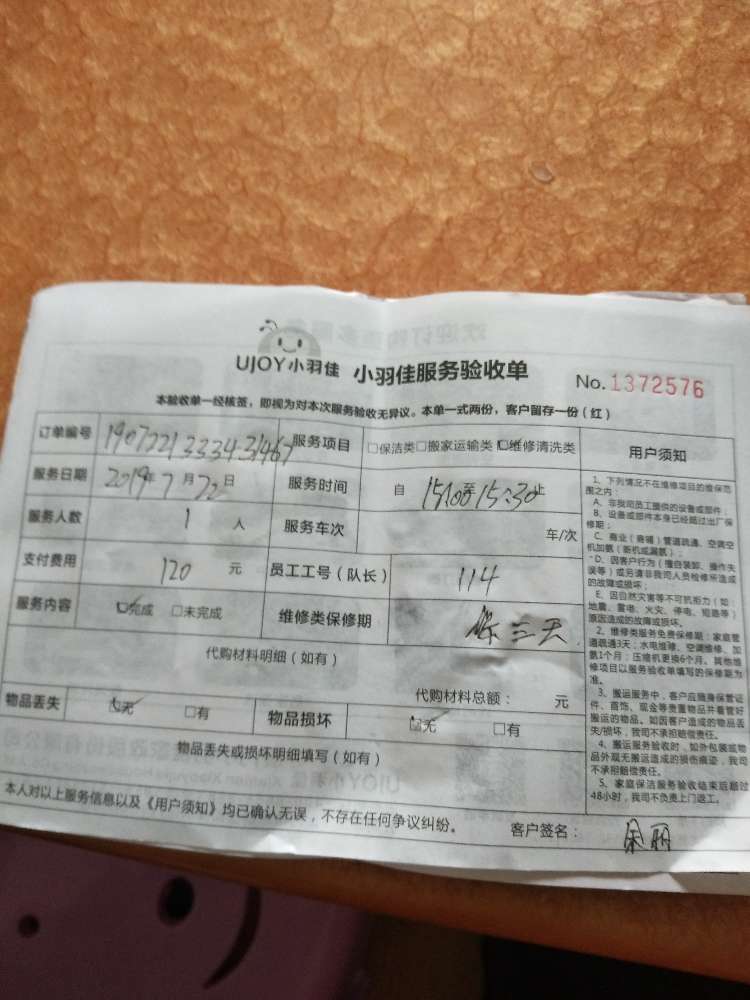 UJOY小羽佳 小羽佳服务验收单 No.1372576
本验收单一经核签，即视为对本次服务验收无异议。本单一式两份，客户留存一份（红）
订单编号 服务项目 □保洁类□搬家运输类☑维修清洗类
服务日期 2019年7月22日 服务时间 自 15:10至15:30止
服务人数 1 人 服务车次 车/次
支付费用 120 元 员工工号（队长） 114
服务内容 ☑完成 □未完成 维修类保修期 保三天
代购材料明细（如有）
代购材料总额： 元
物品丢失 ☑无 □有 物品损坏 ☑无 □有
物品丢失或损坏明细填写（如有）
本人对以上服务信息以及《用户须知》均已确认无误，不存在任何争议纠纷。 客户签名：
用户须知
1、下列情况不在维修项目的维保范
围之内：
A、非我司员工提供的设备或部件；
B、设备或部件本身已经超过出厂保
修期；
C、商业（商铺）管道疏通、空调空
机加氨（新机或漏氨）；
D、因客户行为（擅自装卸、操作失
误等）或另请非我司人员检修所造成
的故障或损坏；
E、因自然灾害等不可抗拒力（如：
地震、雷电、火灾、停电、短路等）
原因造成的故障或损坏。
2、维修类服务免费保修期：家庭管
道疏通3天；水电维修、空调维修、加
氨1个月；压缩机更换6个月。其他维
修项目以服务验收单填写的保修期为
准。
3、搬运服务中，客户应随身保管证
件、首饰、现金等贵重物品并看管好
搬运的物品。如因客户造成的物品丢
失/损坏，我司不承担赔偿责任。
4、搬运服务验收时，如外包装或物
品外观无搬运造成的损伤痕迹，我司
不承担赔偿责任。
5、家庭保洁服务验收结束后超过
48小时，我司不负责上门返工。